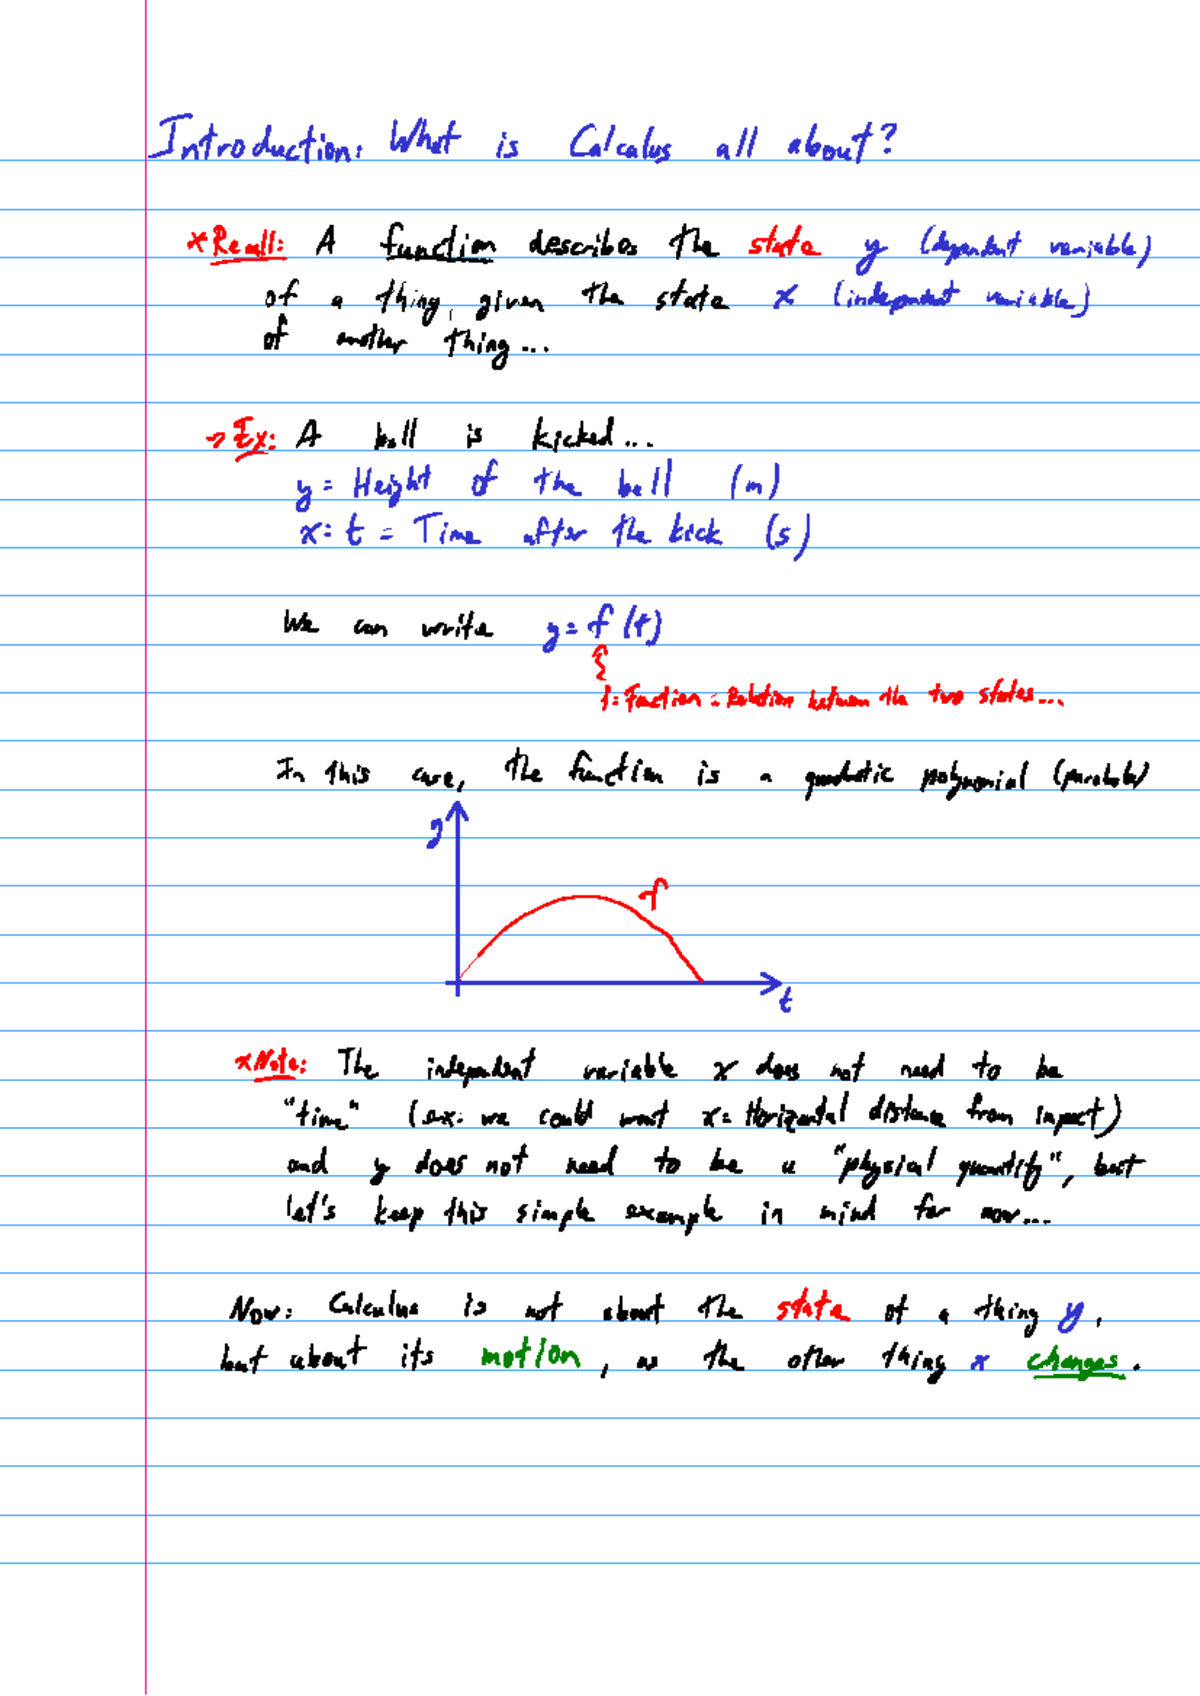 Introduction: What is Calculus all about?
*Recall: A function describes the state y (dependent variable)
of a thing, given the state x (independent variable)
of another thing...
→Ex: A ball is kicked...
y = Height of the ball (m)
x: t = Time after the kick (s)
We can write y = f(t)
f = Function = Relation between the two states...
In this case, the function is a quadratic polynomial (parabola)
y
f
t
*Note: The independent variable x does not need to be
"time" (ex: we could want x = Horizontal distance from impact)
and y does not need to be a "physical quantity", but
let's keep this simple example in mind for now...
Now: Calculus is not about the state of a thing y,
but about its motion, as the other thing x changes.